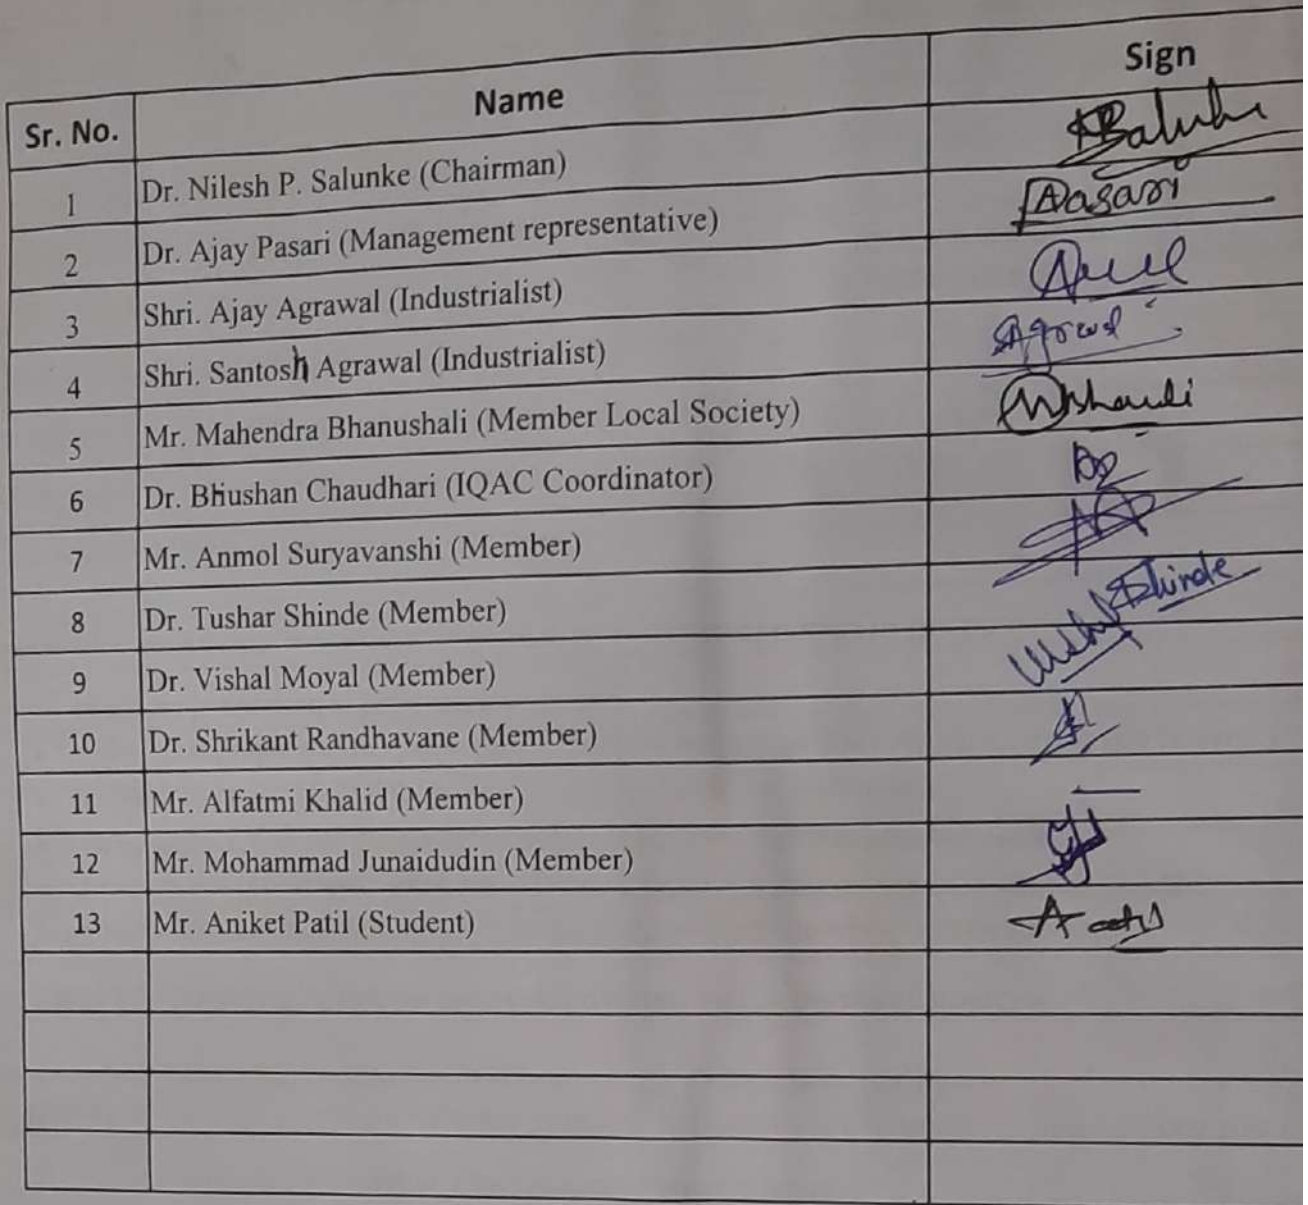 Sr. No. Name Sign
1 Dr. Nilesh P. Salunke (Chairman)
2 Dr. Ajay Pasari (Management representative) Aasari
3 Shri. Ajay Agrawal (Industrialist)
4 Shri. Santosh Agrawal (Industrialist) Agrawal
5 Mr. Mahendra Bhanushali (Member Local Society)
6 Dr. Bhushan Chaudhari (IQAC Coordinator)
7 Mr. Anmol Suryavanshi (Member)
8 Dr. Tushar Shinde (Member) Shinde
9 Dr. Vishal Moyal (Member)
10 Dr. Shrikant Randhavane (Member)
11 Mr. Alfatmi Khalid (Member)
12 Mr. Mohammad Junaidudin (Member)
13 Mr. Aniket Patil (Student)